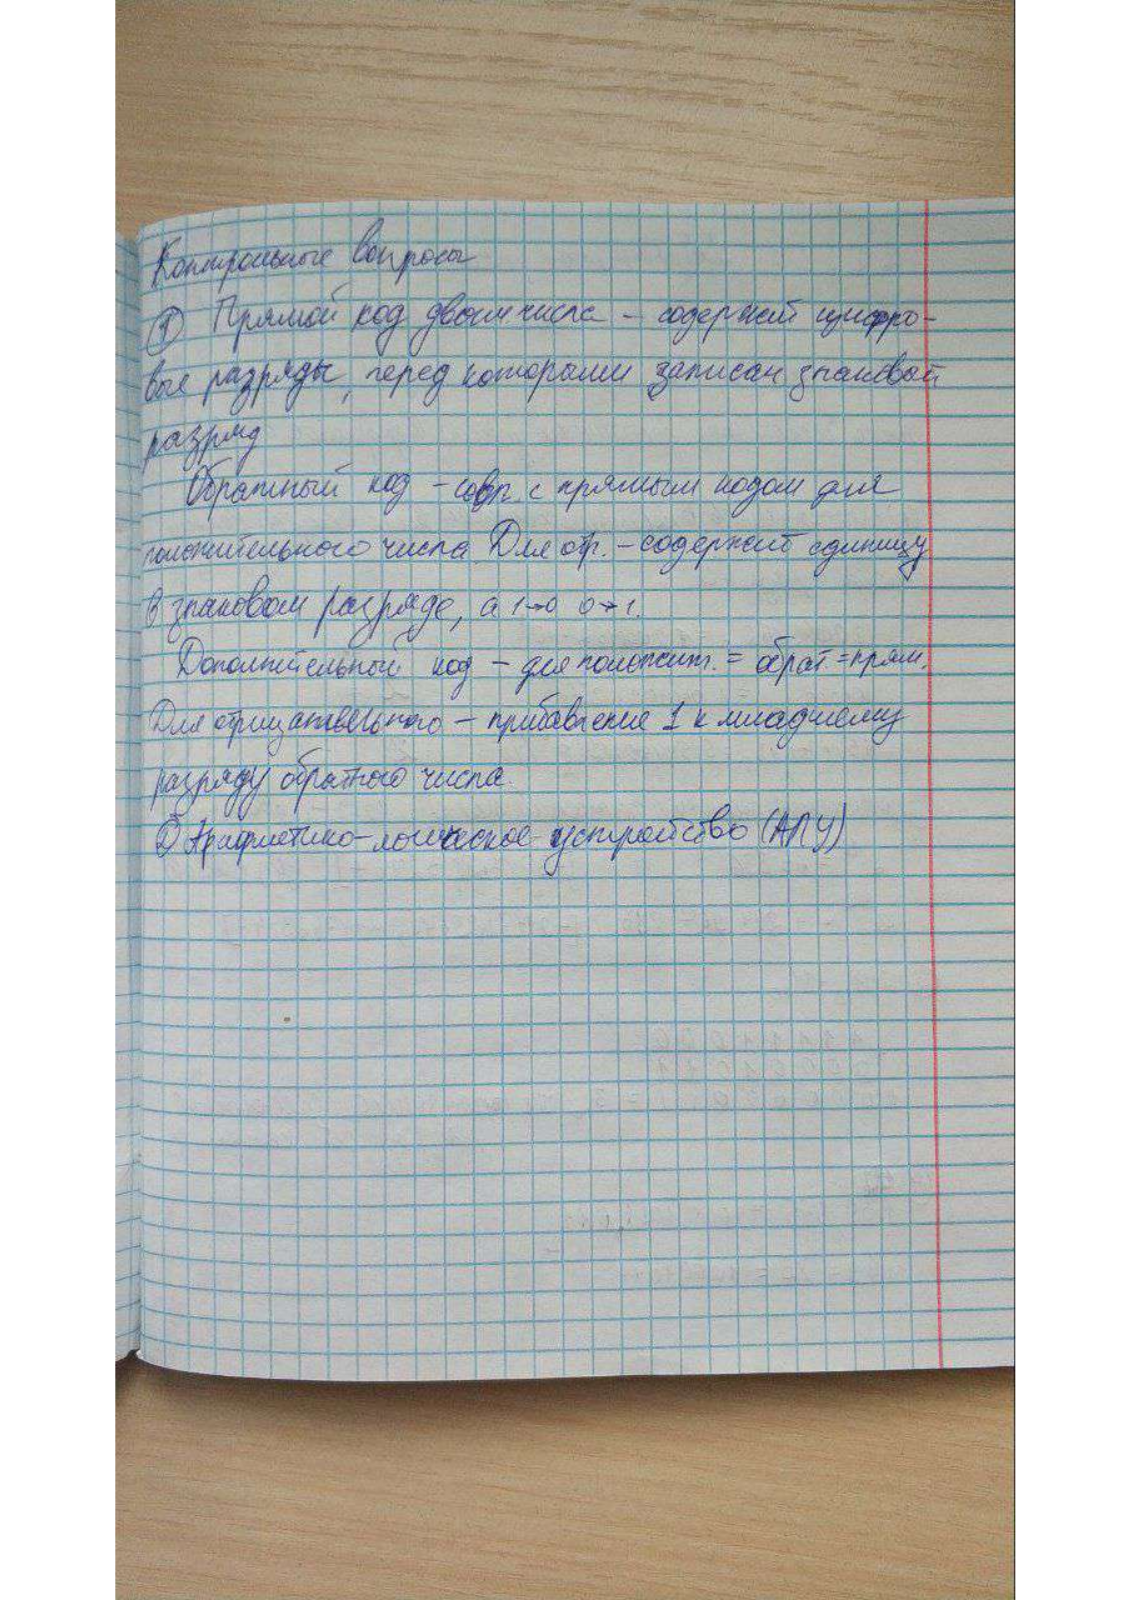 Контрольные вопросы
① Прямой код двоичн. числа – содержит цифро-
вые разряды, перед которыми записан знаковый
разряд
Обратный код – совп. с прямым кодом для
положительного числа. Для отр. – содержит единицу
в знаковом разряде, а 1→0 0→1.
Дополнительный код – для положит. = обрат. = прям.
Для отрицательного – прибавление 1 к младшему
разряду обратного числа
② Арифметико-логическое устройство (АЛУ)